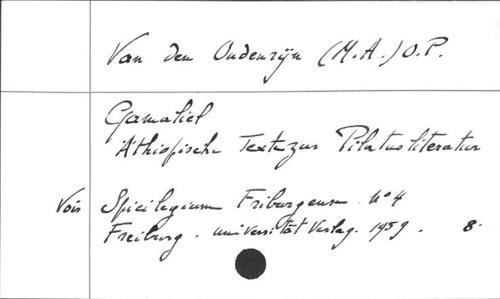 Van den Oudenrijn (M.A.) O.P.
Gamaliel
Äthiopische Texte zur Pilatusliteratur
Voir Spicilegium Friburgense N° 4
Freiburg. Universität Verlag. 1959. 8.